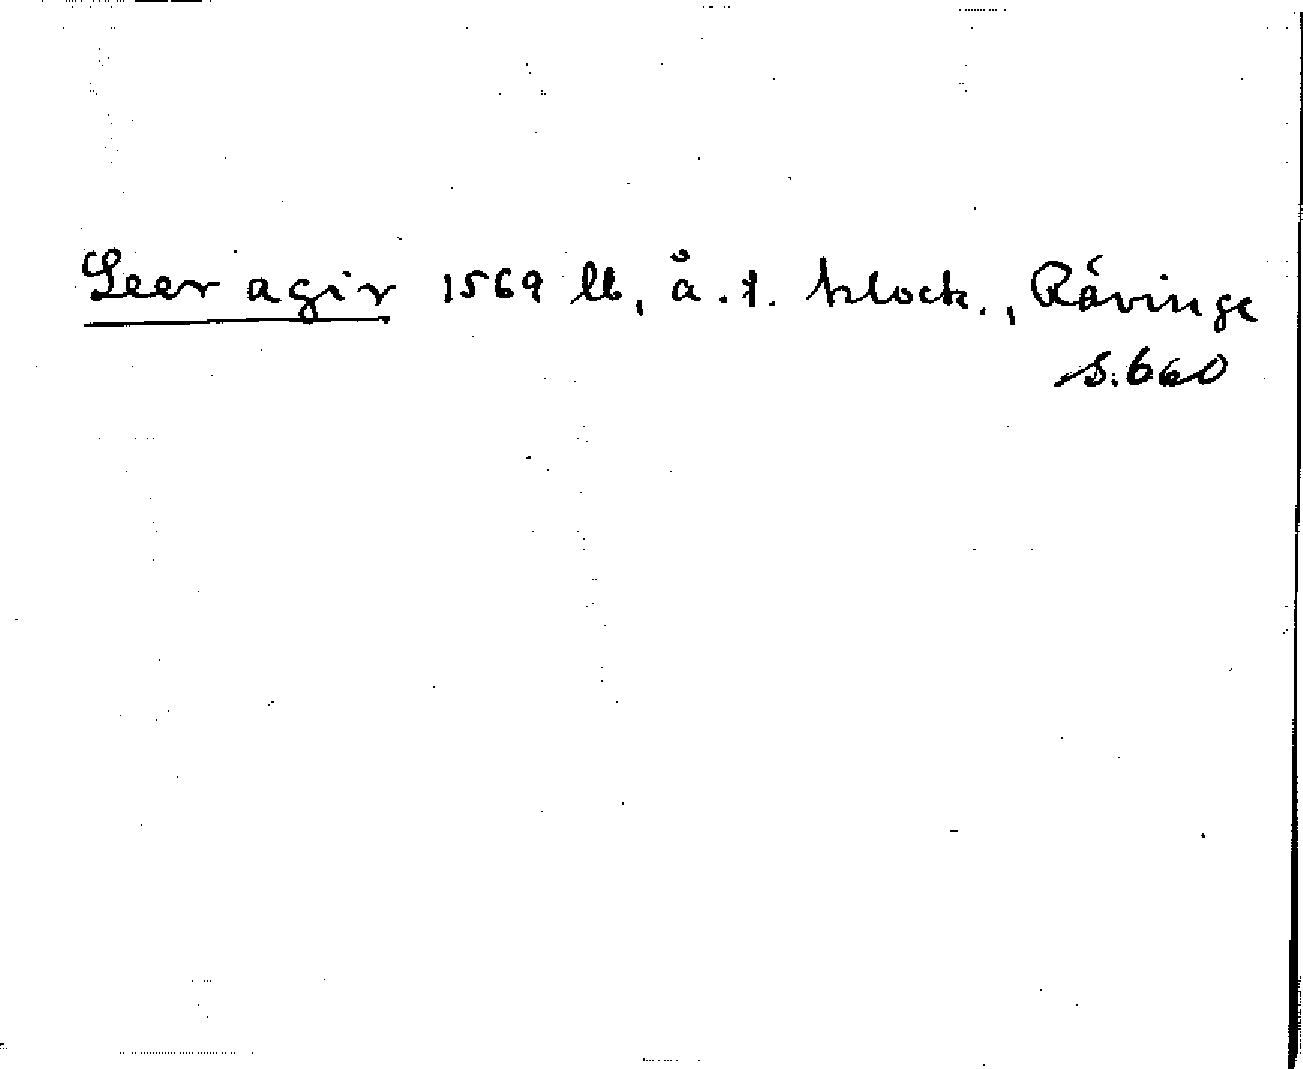 Leer agir 1569 lb, å.t. klock., Rävinge
s. 660